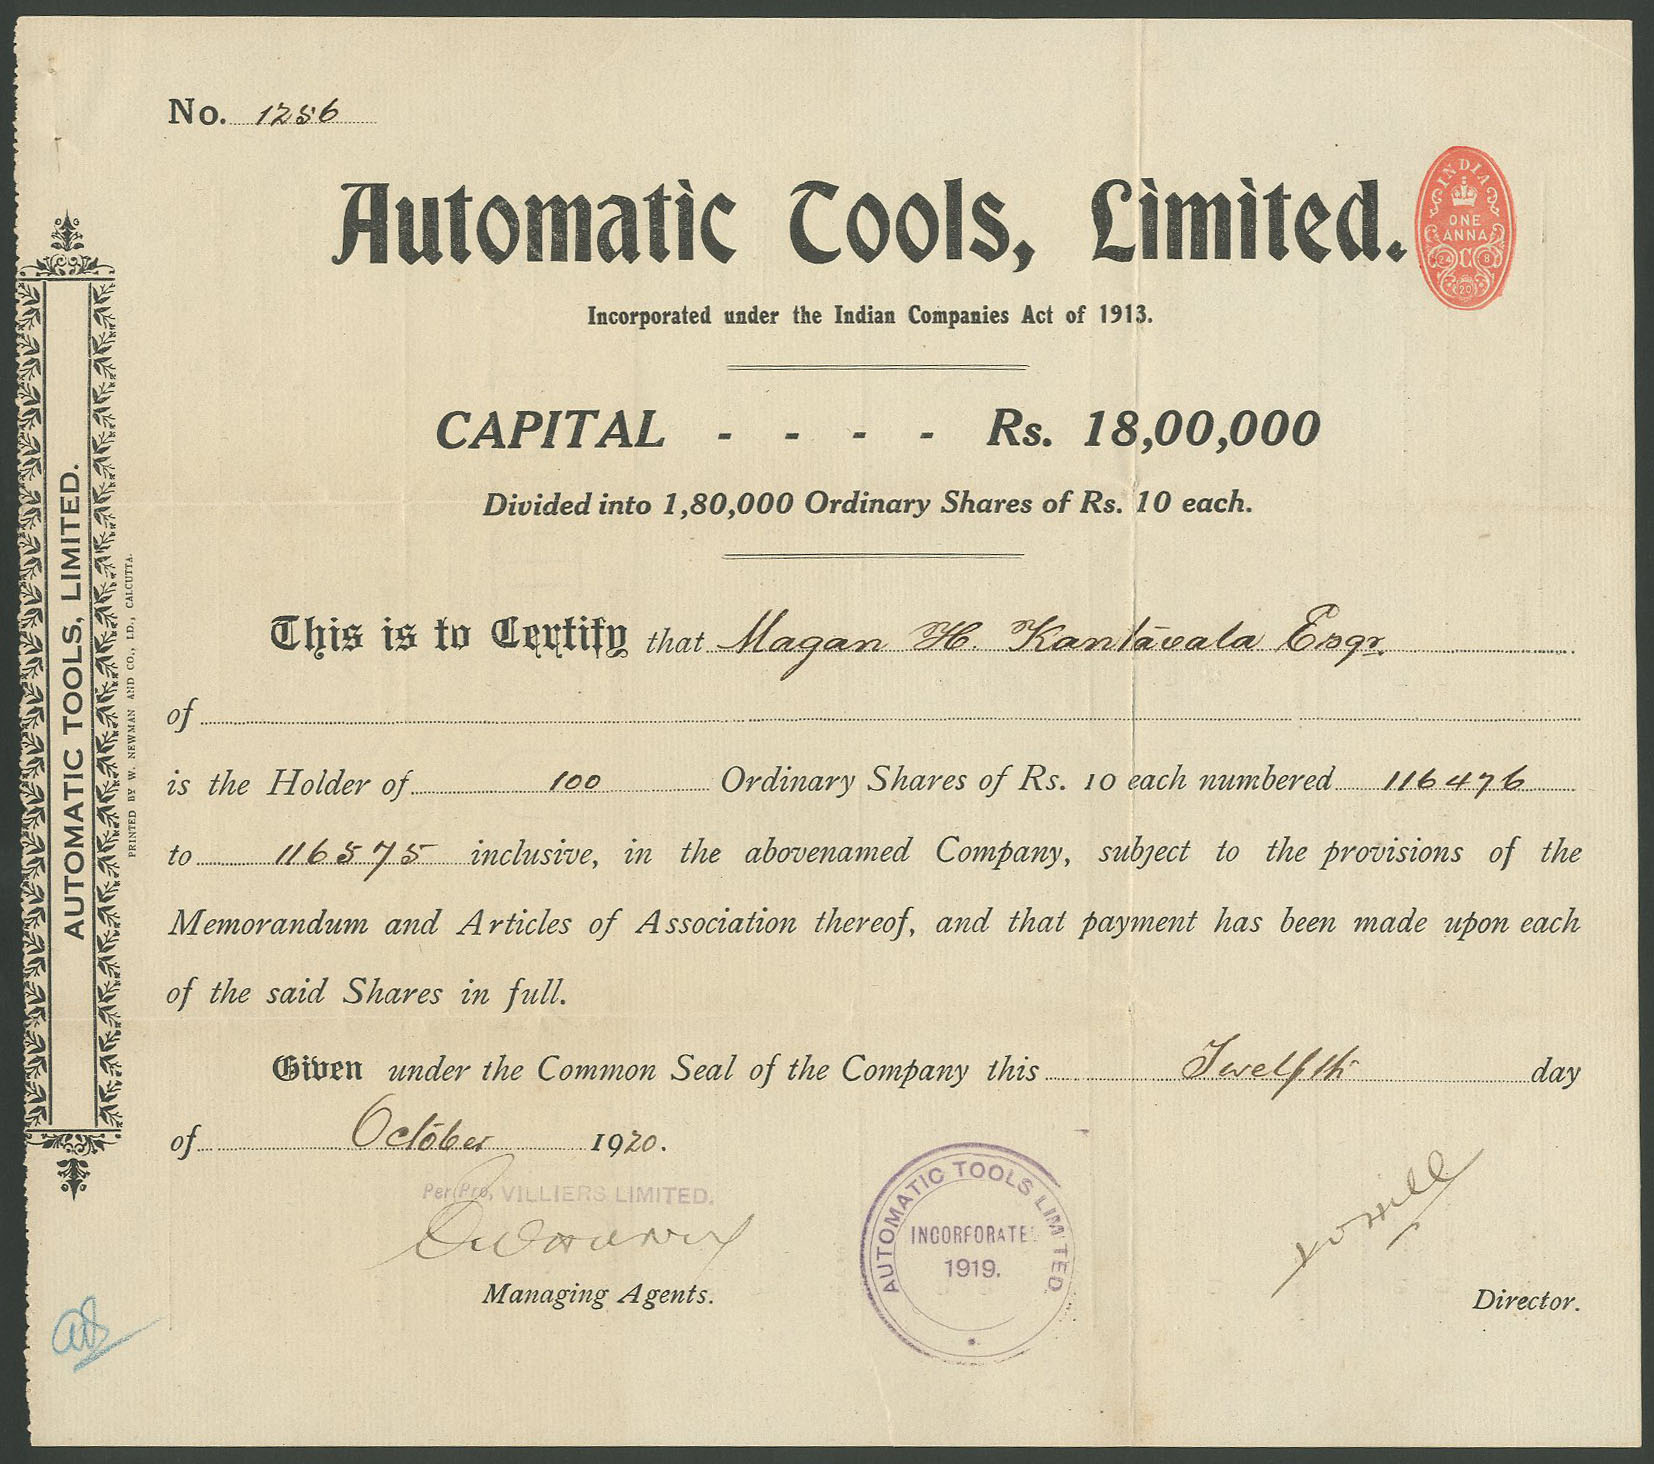 No. 1256
Automatic Tools, Limited.
INDIA
ONE
ANNA
24 C 8
20
Incorporated under the Indian Companies Act of 1913.
CAPITAL - - - - Rs. 18,00,000
Divided into 1,80,000 Ordinary Shares of Rs. 10 each.
This is to Certify that Magan H. Kantavala Esqr.
of
is the Holder of 100 Ordinary Shares of Rs. 10 each numbered 116476
to 116575 inclusive, in the abovenamed Company, subject to the provisions of the
Memorandum and Articles of Association thereof, and that payment has been made upon each
of the said Shares in full.
Given under the Common Seal of the Company this Twelfth day
of October 1920.
Per Pro, VILLIERS LIMITED.
Managing Agents.
AUTOMATIC TOOLS LIMITED
INCORPORATED
1919.
Director.
AUTOMATIC TOOLS, LIMITED.
PRINTED BY W. NEWMAN AND CO., LD., CALCUTTA.